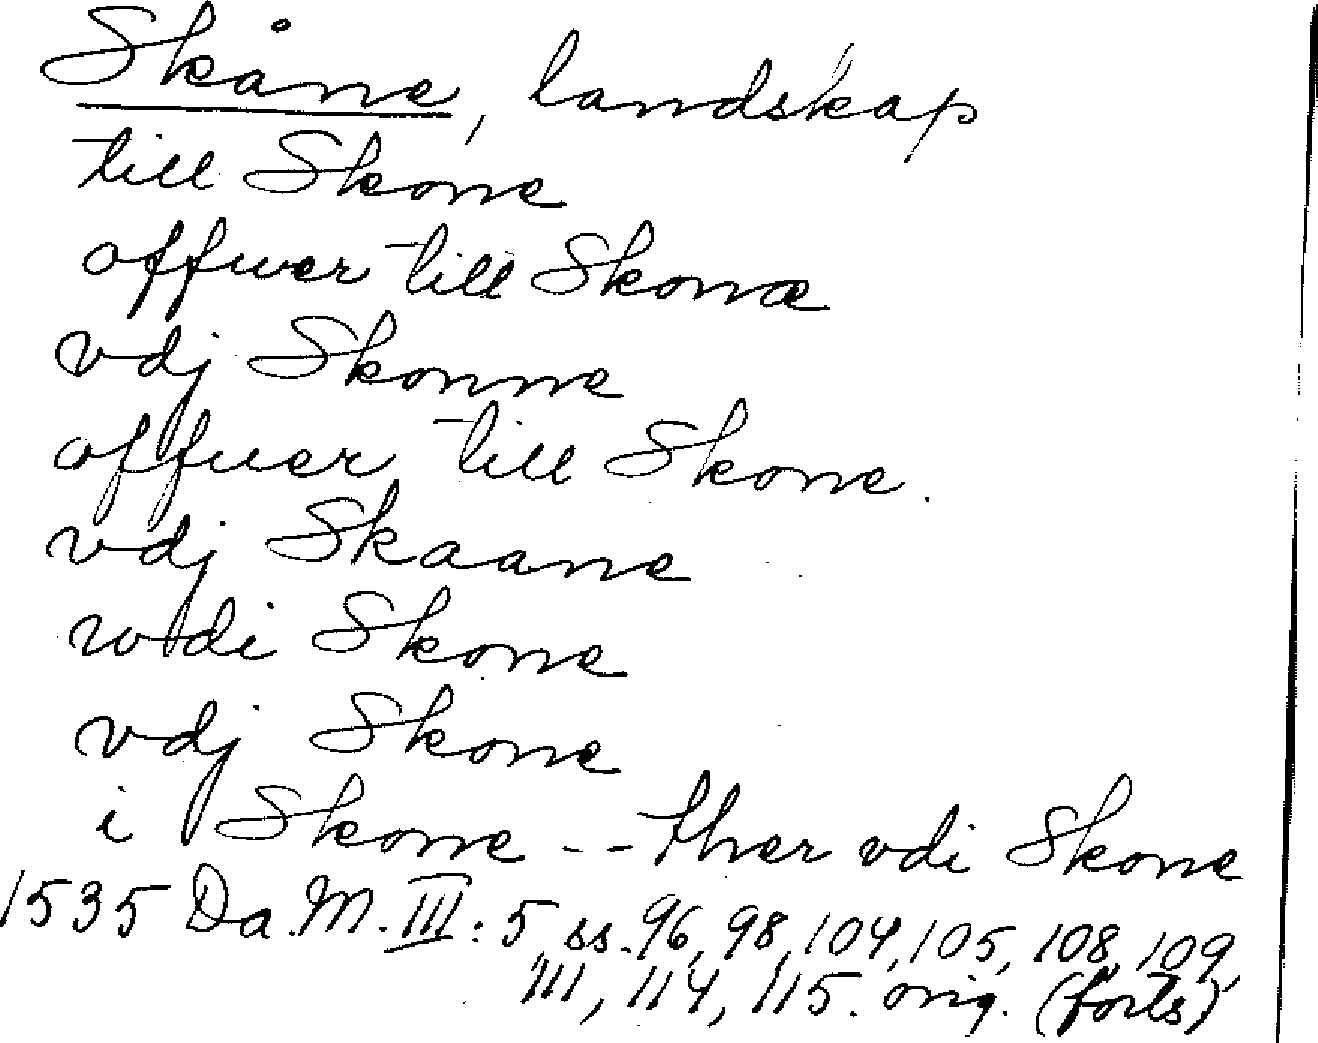 Skåne, landskap
till Skone
offwer till Skonæ
vdj Skonne
offuer till Skone.
vdj Skaane
wdi Skone
vdj Skone
i Skone -- ther vdi Skone
1535 Da.M.III:5, ss.96,98,104,105,108,109,
111,114,115. orig. (forts)